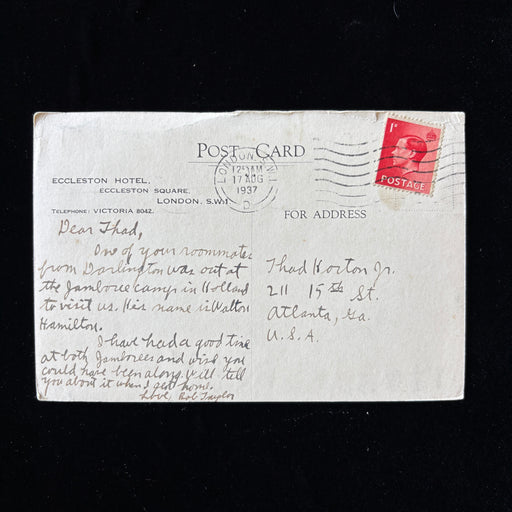 POST CARD
1D
POSTAGE
LONDON. S.W.1
12 15 AM
17 AUG
1937
D
ECCLESTON HOTEL,
ECCLESTON SQUARE,
LONDON. S.W.1.
TELEPHONE: VICTORIA 8042.
FOR ADDRESS
Dear Thad,
One of your roommates
from Darlington was out at
the Jamboree camp in Holland
to visit us. His name is Walton
Hamilton.
I have had a good time
at both Jamborees and wish you
could have been along. Will tell
you about it when I get home.
Love, Bob Taylor
Thad Horton Jr.
211 15th St.
Atlanta, Ga.
U.S.A.